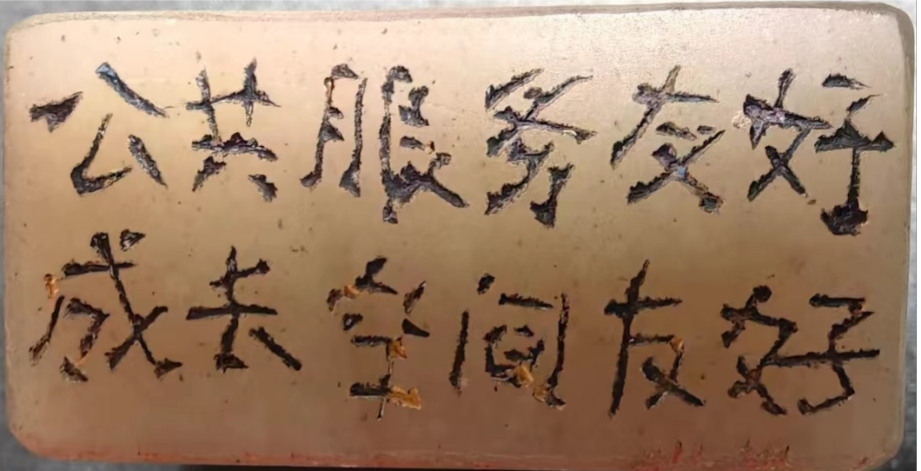 公共服务友好
成去空间友好